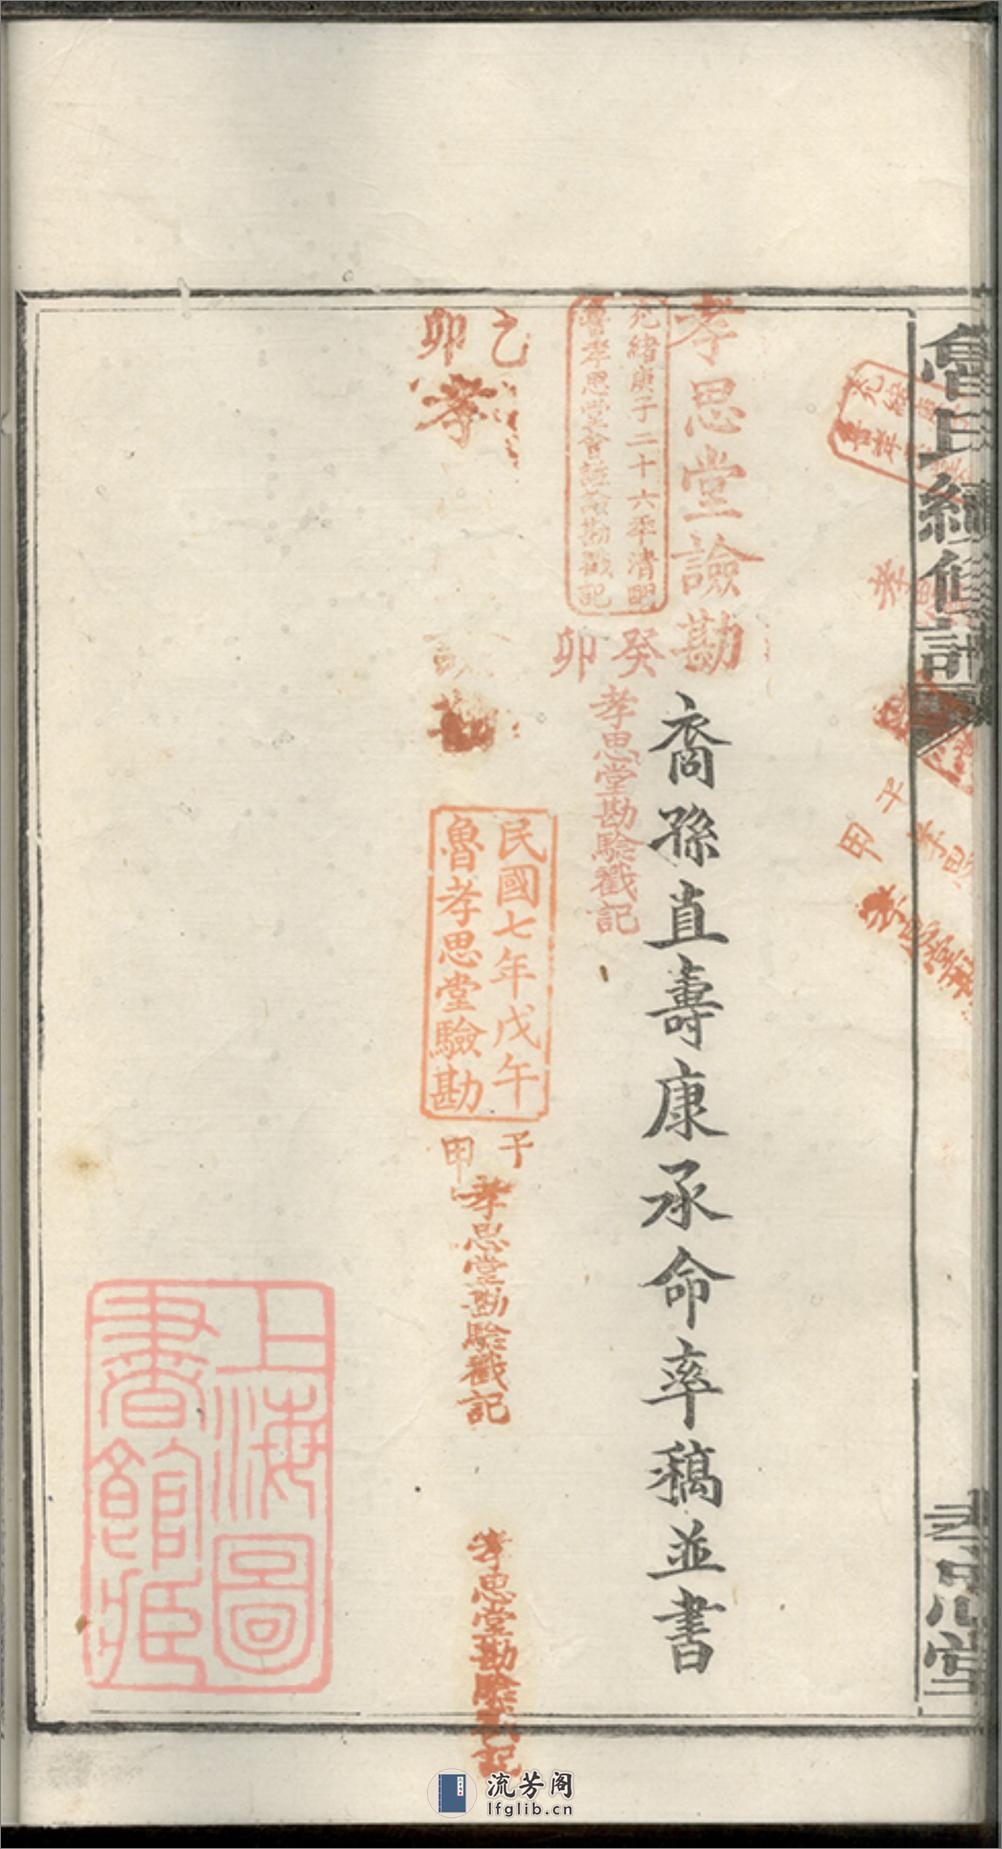 魯氏續修譜
孝思堂
孝思堂驗勘
光緒庚子二十六年清明
魯孝思堂會註驗勘戳記
癸卯
孝思堂勘驗戳記
裔孫直壽康承命率稿並書
乙卯
孝
民國七年戊午
魯孝思堂驗勘
甲子
孝思堂勘驗戳記
孝思堂勘驗戳記
上海圖書館藏
流芳阁
lfglib.cn